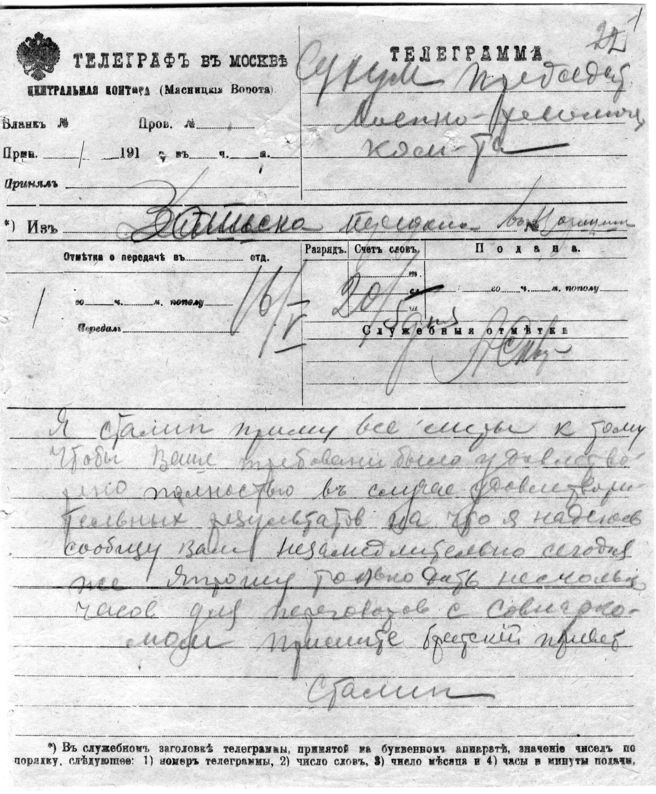 22 1
ТЕЛЕГРАФЪ ВЪ МОСКВѢ
ЦЕНТРАЛЬНАЯ КОНТОРА (Мясницкія Ворота).
Бланкъ № Пров. №
Прин. / 191 г. въ ч. м.
Принялъ
ТЕЛЕГРАММА
Сухум Председат
Военно-революц
ком-та
*) Изъ Записка передана
Отмѣтка о передачѣ въ отд.
го ч. м. пополу
Передалъ
16/V
Разрядъ. Счетъ словъ. Подана.
20/V го ч. м. пополу
Служебныя отмѣтки
Я сталин приму все меры к тому
чтобы ваше требование было удовлетво
рено полностью въ случае удовлетвори
тельных результатов на что я надеюсь
сообщу вам незамедлительно сегодня
же Я прошу только дать несколько
часов для переговоров с Совнарко-
мом примите братский привет
Сталин
*) Въ служебномъ заголовкѣ телеграммы, принятой на буквенномъ аппаратѣ, значеніе чиселъ по
порядку, слѣдующее: 1) номеръ телеграммы, 2) число словъ, 3) число мѣсяца и 4) часы и минуты подачи.